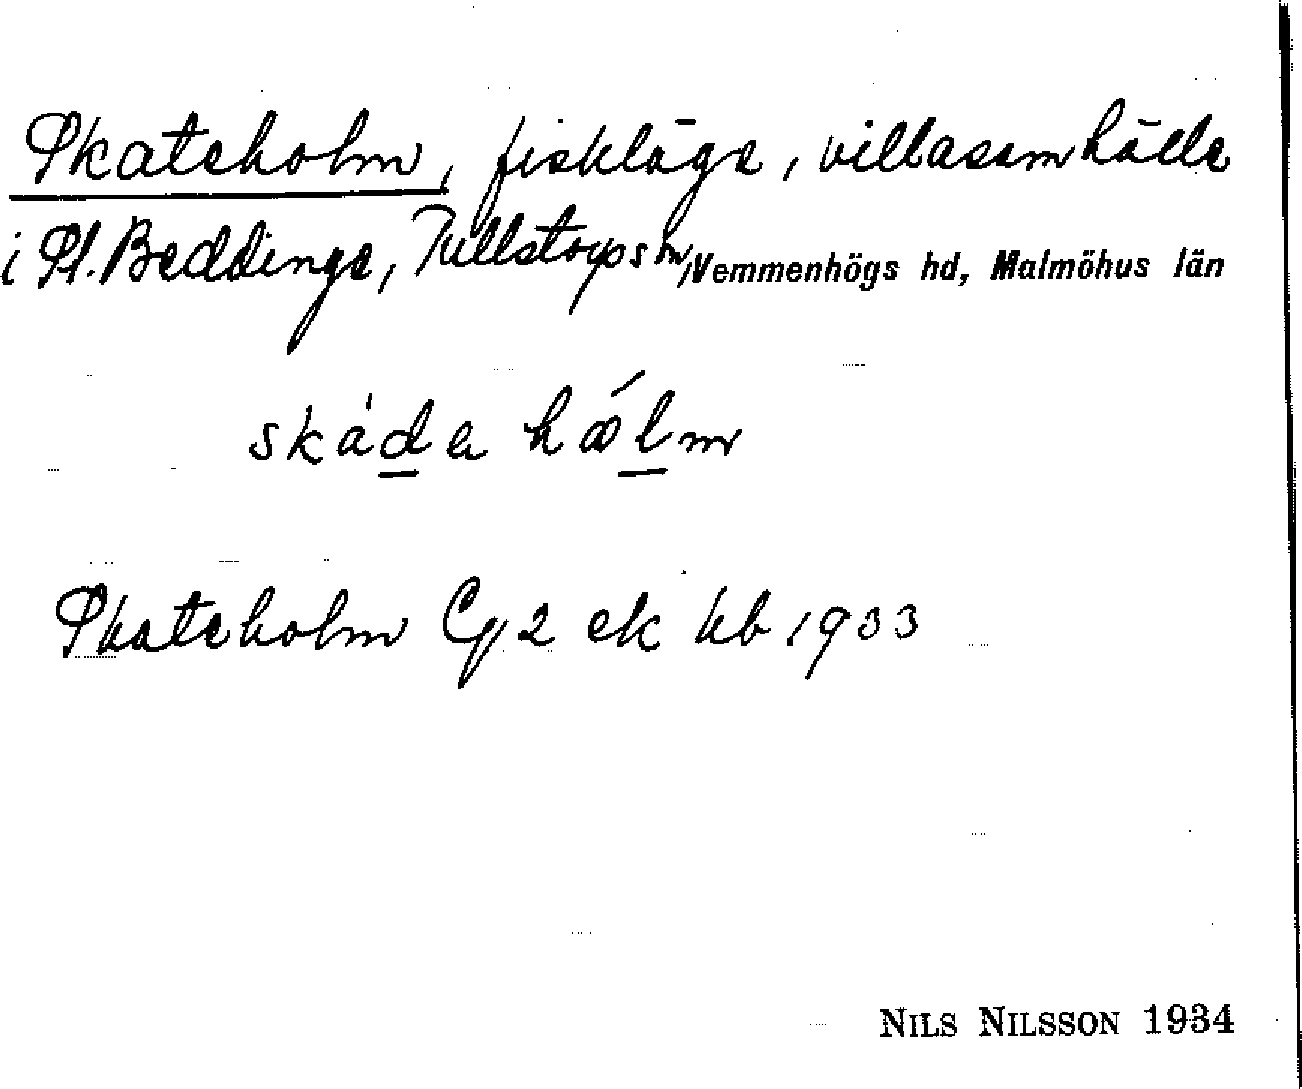 Skateholm, fiskläge, villasamhälle
i St. Beddinge, Tullstorps sn, Vemmenhögs hd, Malmöhus län
skáde hólm
Skateholm Cg 2 ek kb 1933
NILS NILSSON 1934